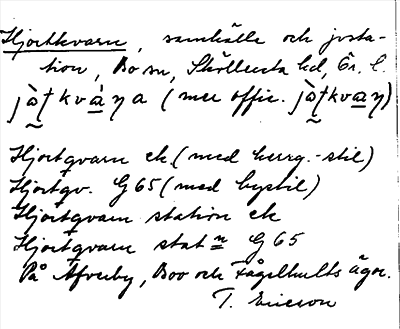 Hjortkvarn, samhälle och posta-
tion, Bo sn, Sköllersta hd, Ör. l.
(mer offic.
Hjortqvarn ek. (med herrg.-stil)
Hjortqv. G65 (med bystil)
Hjortqvarn station ek
Hjortqvarn stat:n G65
På Åfverby, Boo och Fågelhults ägor.
T. Ericson